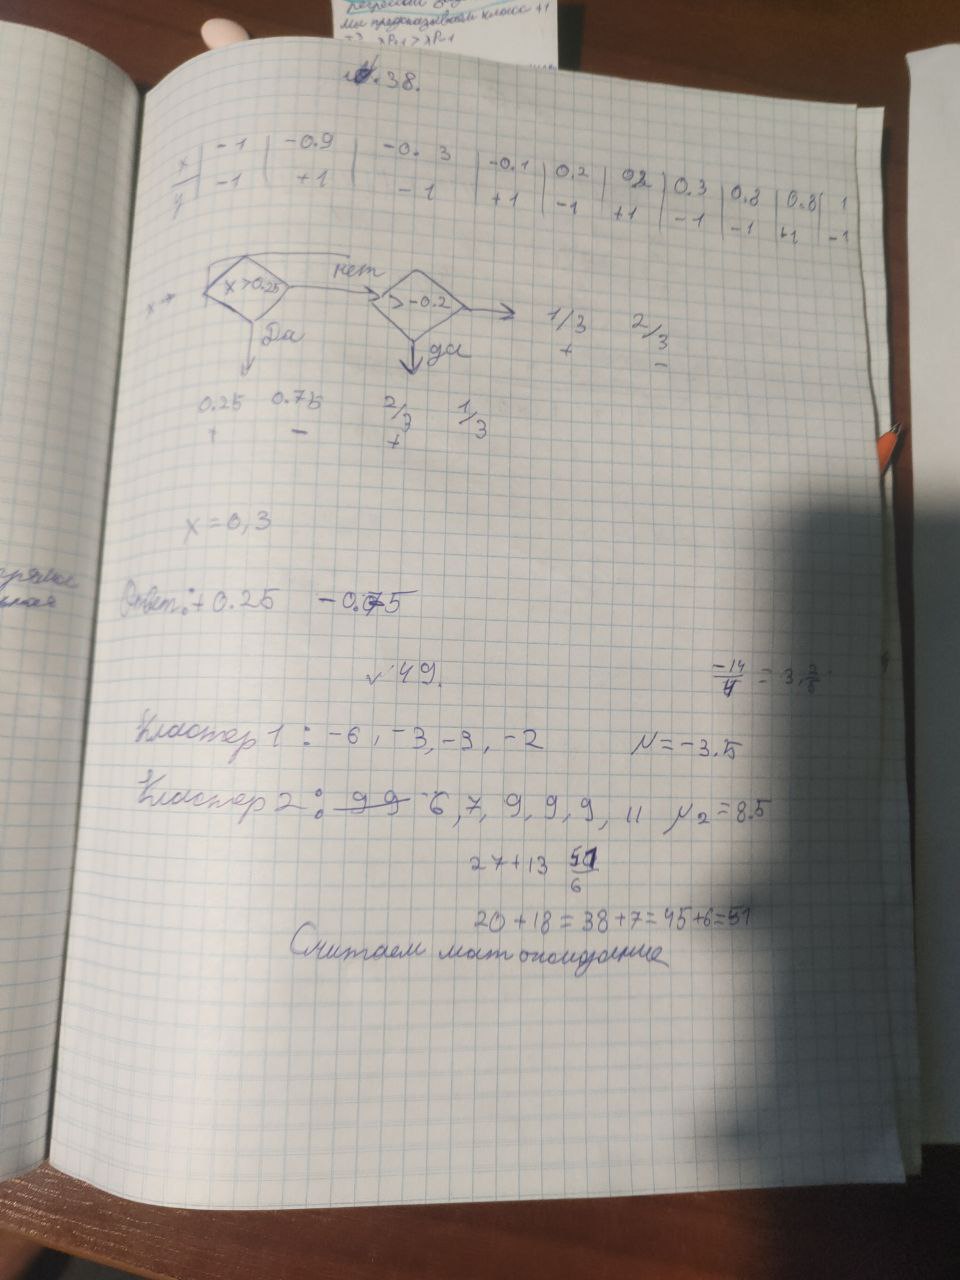 мы предсказываем класс +1
№.38.
x | -1 | -0.9 | -0.3 | -0.1 | 0.2 | 0.2 | 0.3 | 0.8 | 0.8 | 1
y | -1 | +1 | -1 | +1 | -1 | +1 | -1 | -1 | +1 | -1
x > 0.25 нет > -0.2 1/3 2/3
Да да + -
0.25 0.75 2/3 1/3
+ - +
x = 0,3
Ответ: + 0.25 - 0.75
√ 49.
-14/4 = 3,
Кластер 1 : -6, -3, -3, -2 μ = -3.5
Кластер 2 : 6, 7, 9, 9, 9, 11 μ2 = 8.5
27+13 51/6
20 + 18 = 38 + 7 = 45 + 6 = 51
Считаем мат ожидание